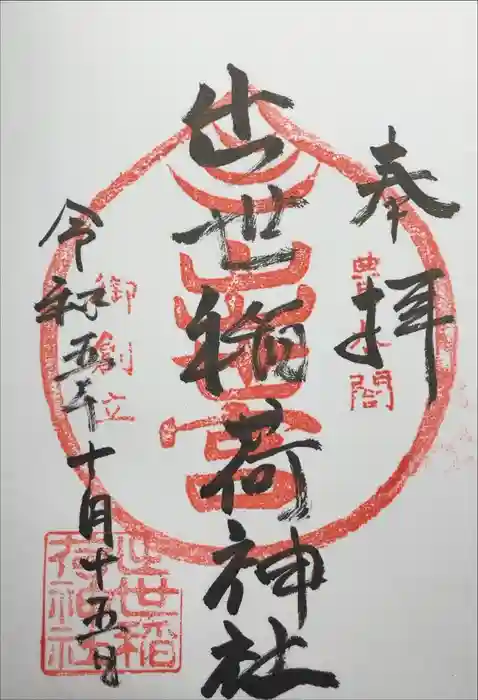 奉拝
出世稲荷神社
令和五年十月十五日
豊太閤
御創立
出世稲
荷神社